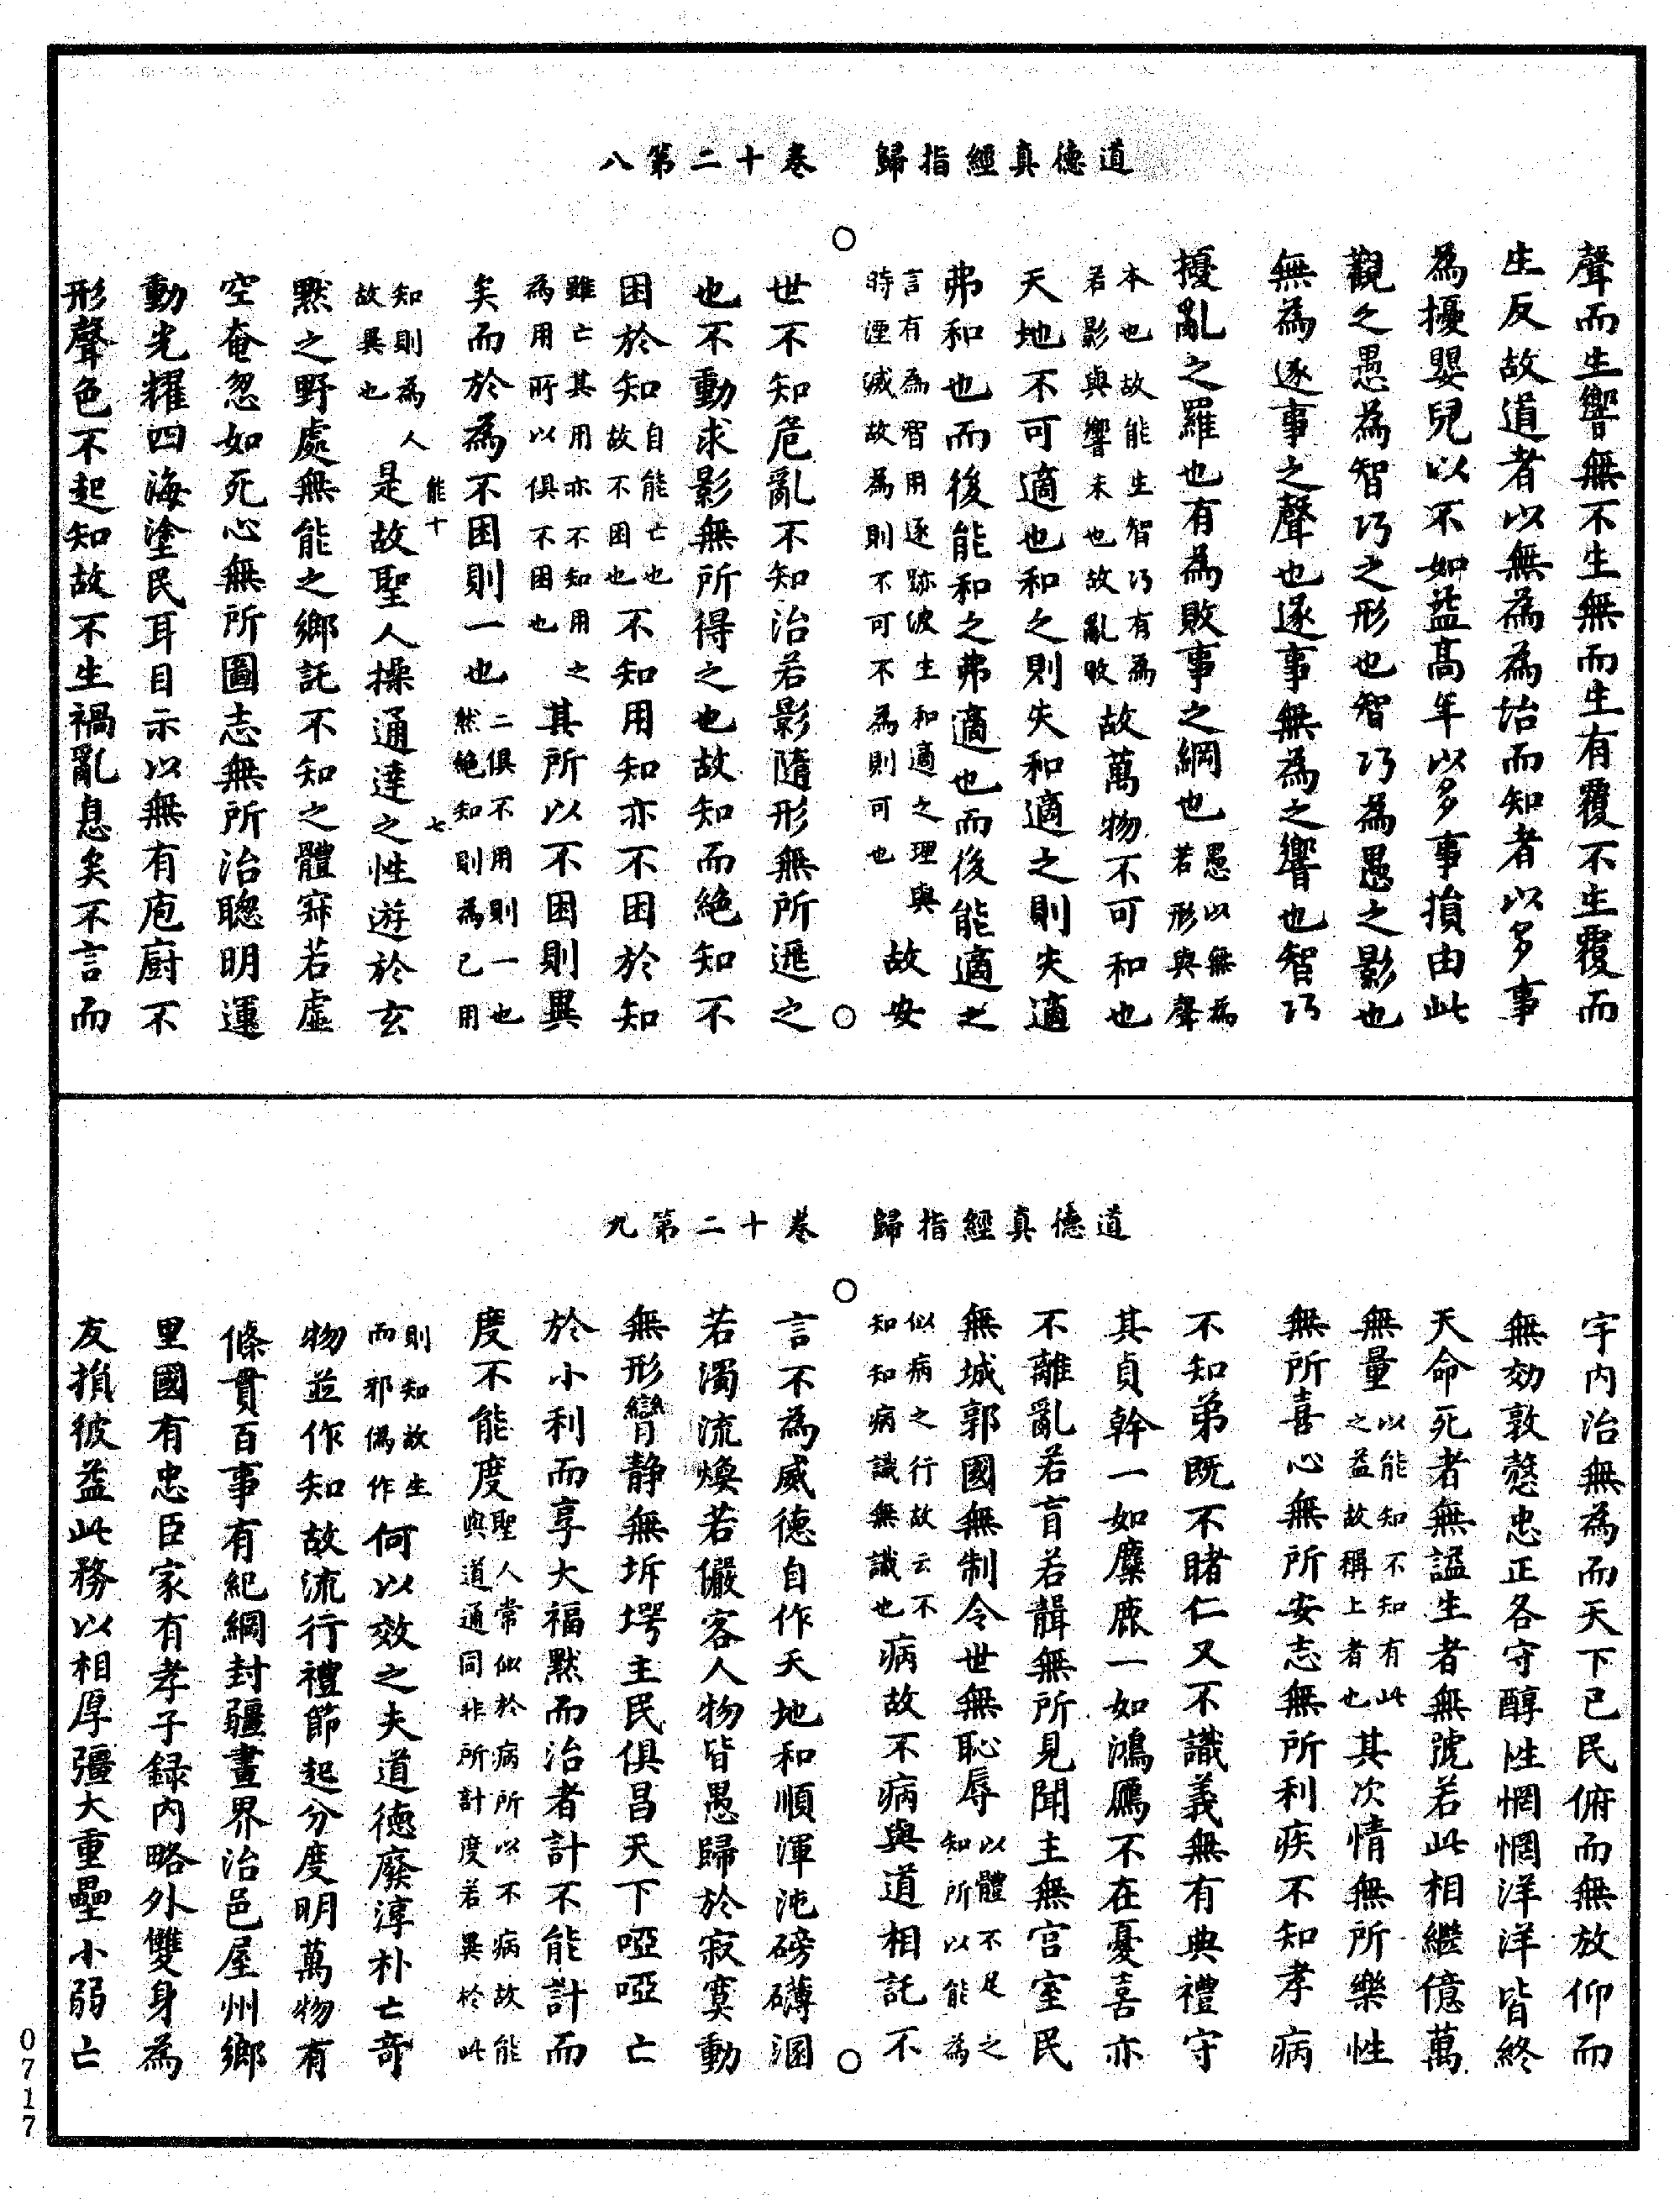 道德真經指歸　卷十二第八
聲而生響無不生無而生有覆不生覆而
生反故道者以無為為治而知者以多事
為擾嬰兒以不知益高年以多事損由此
觀之愚為智巧之形也智巧為愚之影也
無為遂事之聲也遂事無為之響也智巧
擾亂之羅也有為敗事之綱也愚以無為若形與聲
本也故能生智巧有為若影與響末也故亂敗故萬物不可和也
天地不可適也和之則失和適之則失適
弗和也而後能和之弗適也而後能適之
言有為智用逐跡彼生和適之理與時湮滅故為則不可不為則可也故安
世不知危亂不知治若影隨形無所遯之
也不動求影無所得之也故知而絕知不
困於知自能亡也故不困也不知用知亦不困於知
雖亡其用亦不知用之為用所以俱不困也其所以不困則異
矣而於為不困則一也二俱不用則一也然絕知則為己用
知則為人故異也是故聖人操通達之性遊於玄
能十　七
默之野處無能之鄉託不知之體寂若虛
空奄忽如死心無所圖志無所治聰明運
動光耀四海塗民耳目示以無有庖廚不
形聲色不起知故不生禍亂息矣不言而
道德真經指歸　卷十二第九
宇內治無為而天下已民俯而無放仰而
無効敦愨忠正各守醇性惘惘洋洋皆終
天命死者無謚生者無號若此相繼億萬
無量以能知不知有此之益故稱上者也其次情無所樂性
無所喜心無所安志無所利疾不知孝病
不知弟既不睹仁又不識義無有典禮守
其貞幹一如麋鹿一如鴻鴈不在憂喜亦
不離亂若盲若聾無所見聞主無宮室民
無城郭國無制令世無恥辱以體不足之知所以能為
似病之行故云不知知病識無識也病故不病與道相託不
言不為威德自作天地和順渾沌磅礴溷
若濁流煥若儼客人物皆愚歸於寂寞動
無形臠靜無坼堮主民俱昌天下啞啞亡
於小利而享大福默而治者計不能計而
度不能度聖人常似於病所以不病故能與道通同非所計度若異於此
則知故生而邪偽作何以效之夫道德廢淳朴亡奇
物並作知故流行禮節起分度明萬物有
條貫百事有紀綱封疆畫界治邑屋州鄉
里國有忠臣家有孝子録內略外雙身為
友損彼益此務以相厚彊大重壘小弱亡
0717